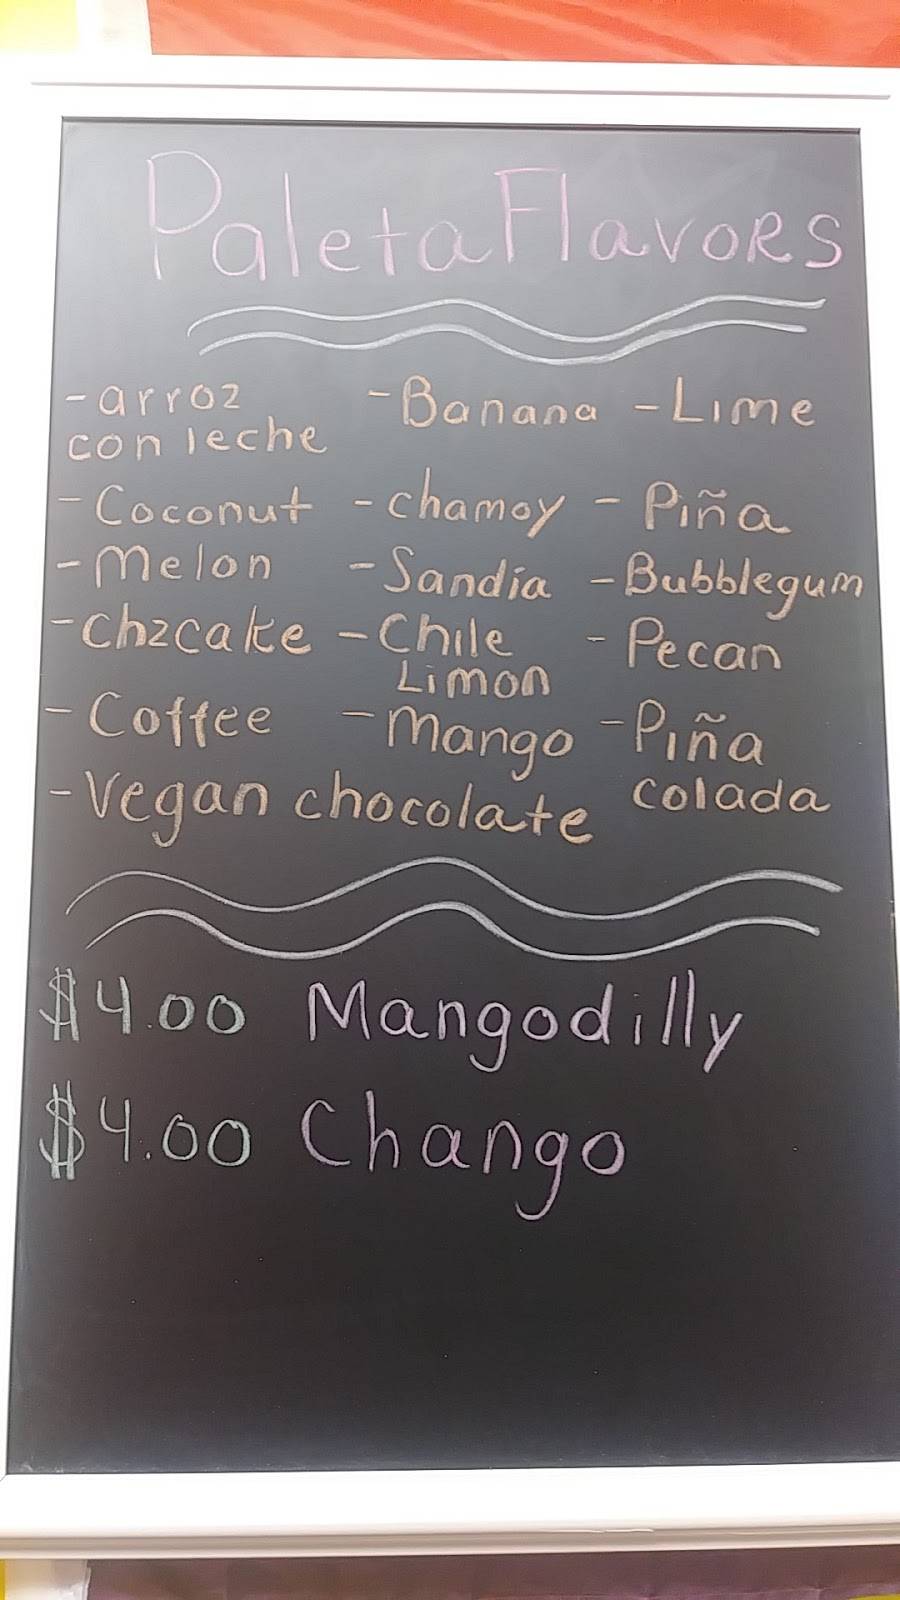 Paleta Flavors
- arroz con leche
- Banana
- Lime
- Coconut
- chamoy
- Piña
- Melon
- Sandía
- Bubblegum
- Chzcake
- Chile Limon
- Pecan
- Coffee
- Mango
- Piña colada
- Vegan chocolate
$4.00 Mangodilly
$4.00 Chango